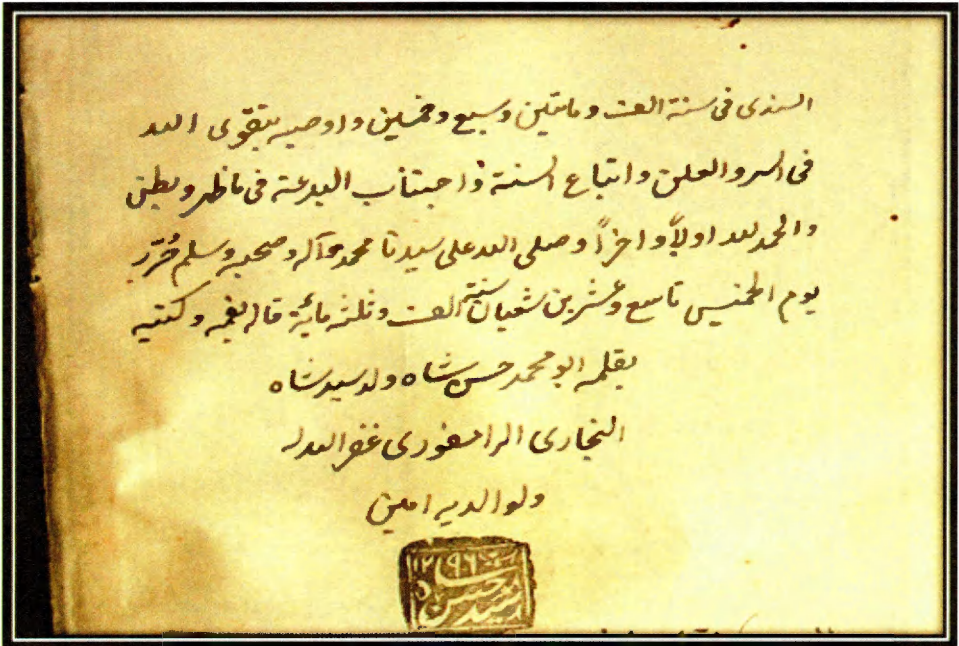 السندى فى سنة الف و مايتين وسبع وخمسين واوصيه بتقوى الله
فى السر والعلن واتباع السنة واجتناب البدعة فى ما ظهر وبطن
والحمد لله اولاً واخراً وصلى الله على سيدنا محمد وآله وصحبه وسلم حُرّر
يوم الخميس تاسع وعشرين شعبان سنة الف وثلثمائة قاله بفمه وكتبه
بقلمه ابو محمد حسن شاه ولد سيد شاه
البخارى الرامفورى غفر الله له
ولوالديه امين
١٢٩٦
سيد حسن شاه